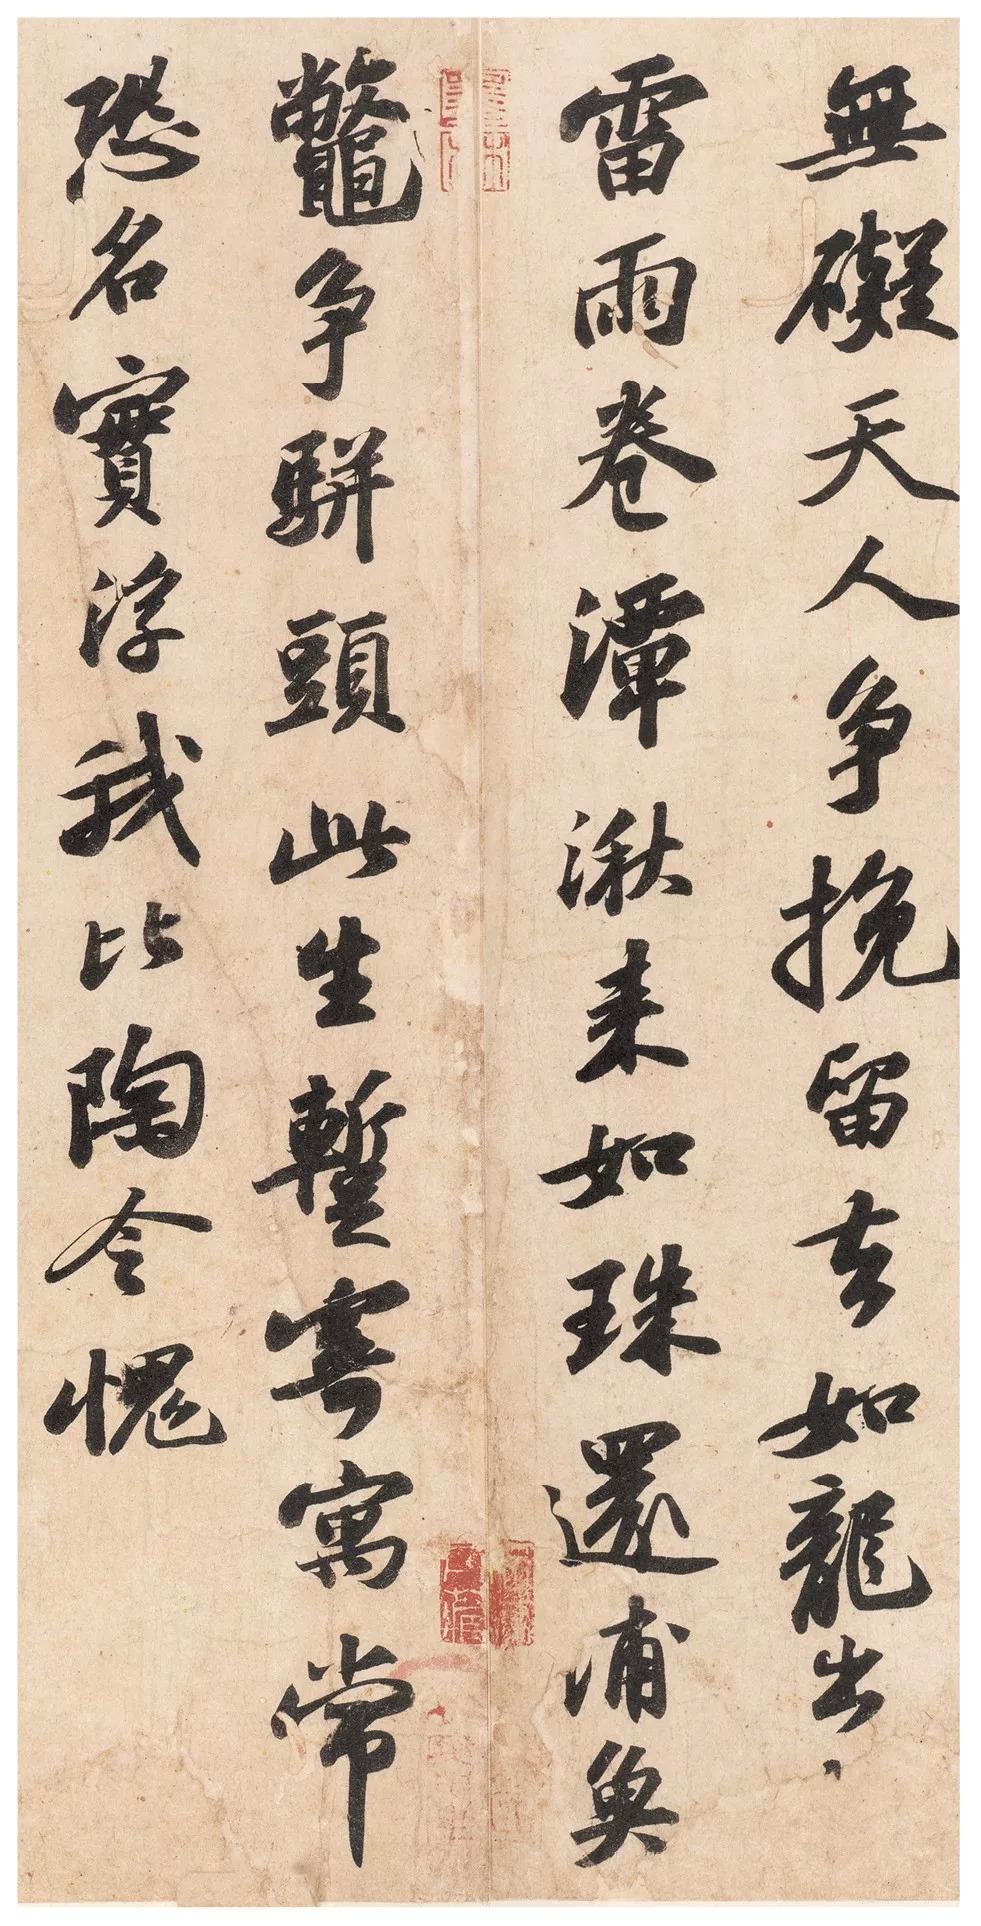 無礙天人争挽留去如龍出、
雷雨卷潭湫来如珠還浦魚
鼈争駢頭此生暫寄寓常
恐名實浮我比陶令愧